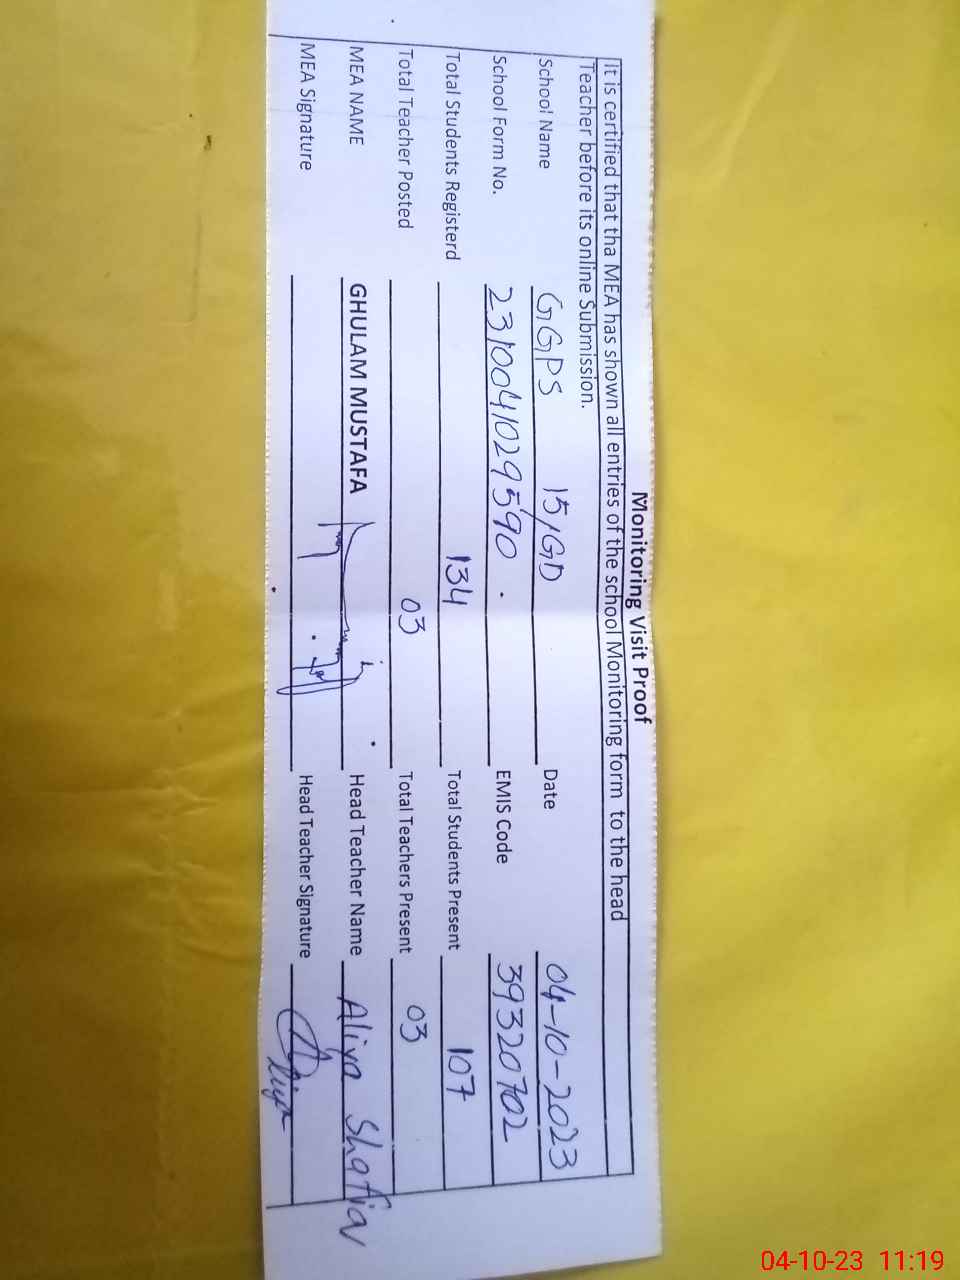 Monitoring Visit Proof
It is certified that tha MEA has shown all entries of the school Monitoring form to the head
Teacher before its online Submission.
School Name GGPS 15/GD Date 04-10-2023
School Form No. 2310041029590 EMIS Code 39320702
Total Students Registerd 134 Total Students Present 107
Total Teacher Posted 03 Total Teachers Present 03
MEA NAME GHULAM MUSTAFA Head Teacher Name Aliya Shafia
MEA Signature Head Teacher Signature
04-10-23 11:19